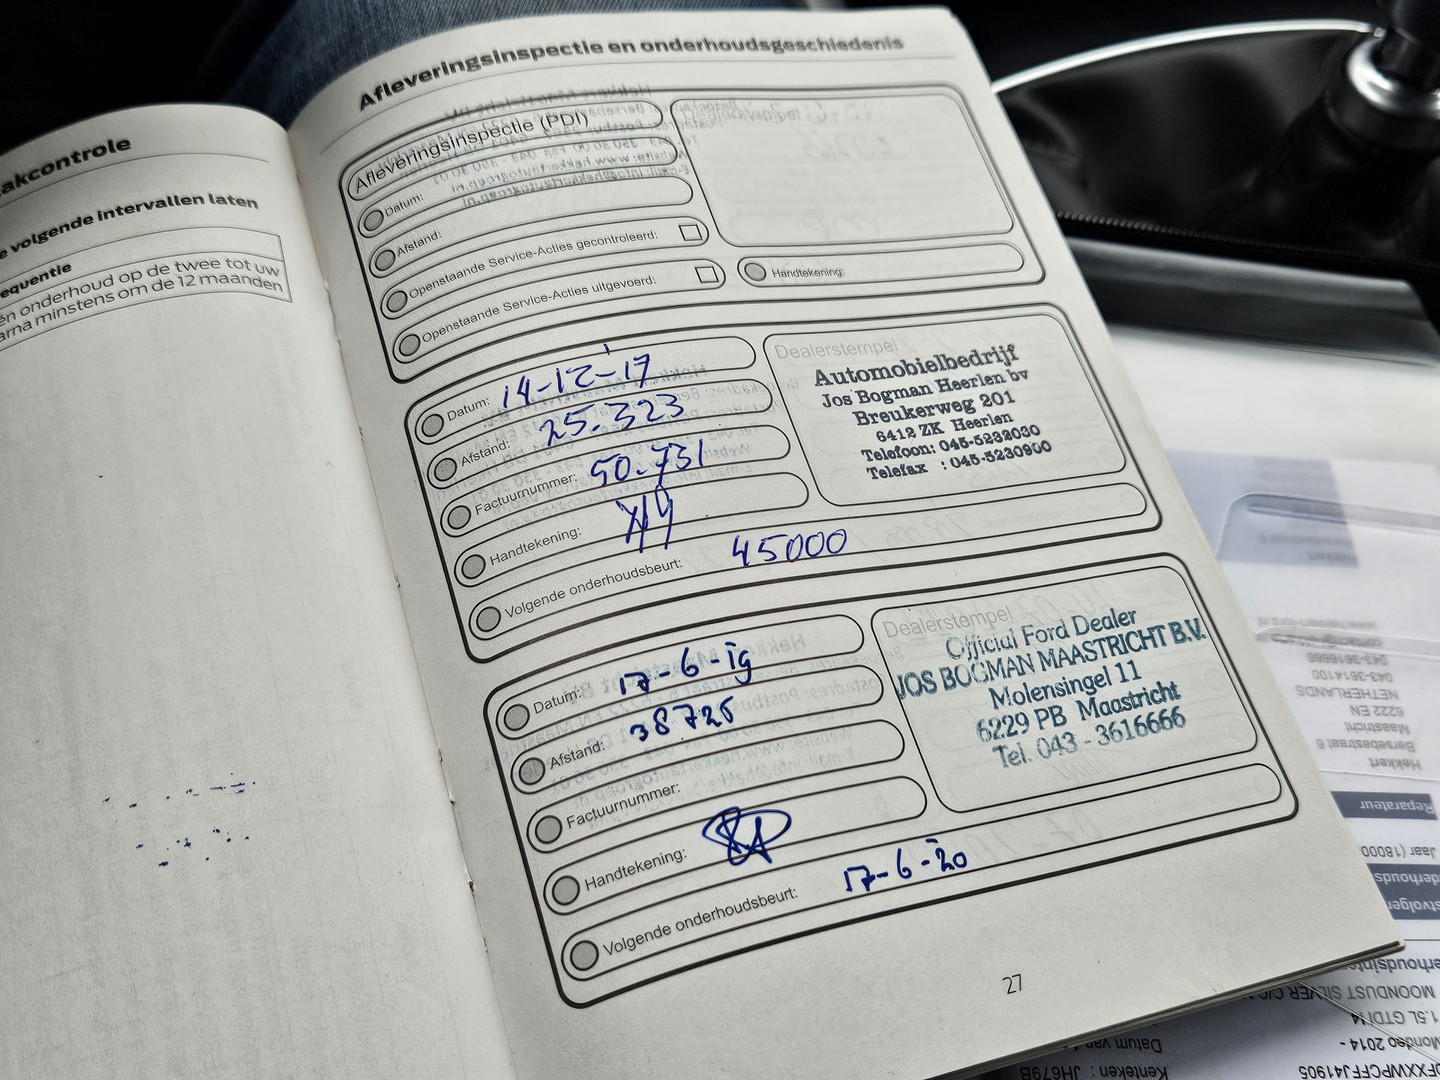 akcontrole
e volgende intervallen laten
equentie
én onderhoud op de twee tot uw
arna minstens om de 12 maanden
Afleveringsinspectie en onderhoudsgeschiedenis
Afleveringsinspectie (PDI)
Datum:
Afstand:
Openstaande Service-Acties gecontroleerd:
Openstaande Service-Acties uitgevoerd:
Dealerstempel
Handtekening:
Datum: 14-12-17
Afstand: 25.323
Factuurnummer: 50.731
Handtekening:
Volgende onderhoudsbeurt: 45000
Dealerstempel
Automobielbedrijf
Jos Bogman Heerlen bv
Breukerweg 201
6412 ZK Heerlen
Telefoon: 045-5232030
Telefax : 045-5230900
Datum: 17-6-19
Afstand: 38725
Factuurnummer:
Handtekening:
Volgende onderhoudsbeurt: 17-6-20
Dealerstempel
Official Ford Dealer
JOS BOGMAN MAASTRICHT B.V.
Molensingel 11
6229 PB Maastricht
Tel. 043 - 3616666
27
Kenteken : JH679B
Datum van
Mondeo 2014 -
1.5L GTDI I4
MOONDUST SILVER
Jaar (18000
Reparateur
Hekkert
Bersebastraat 6
Maastricht
6222 EN
NETHERLANDS
043-3614100
043-3616666